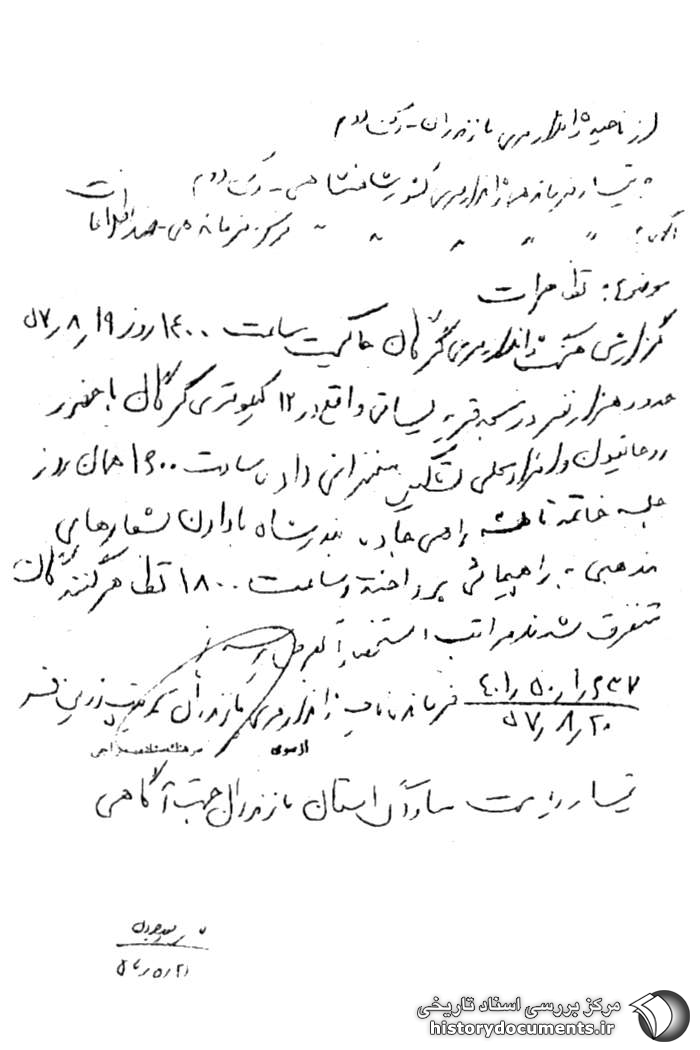 از ناحیه ژاندارمری مازندران - رکن دوم
به تیمسار فرماندهی ژاندارمری کشور شاهنشاهی - رکن دوم
" " " " مرکز فرماندهی - ضد اطلاعات
موضوع: تظاهرات
گزارش هنگ ژاندارمری گرگان حاکیست ساعت ۱۴۰۰ روز ۵۷٫۸٫۱۹
حدود هزار نفر در مسجد قریه واقع در ۱۲ کیلومتری گرگان با حضور
روحانیون و افراد محلی تشکیل سخنرانی داد تا ساعت ۱۶۰۰ همان روز
جلسه خاتمه یافته راهی جاده بندرشاه با دادن شعارهای
مذهبی به راهپیمائی پرداخته و ساعت ۱۸۰۰ تظاهرکنندگان
متفرق شدند مراتب استحضاراً بعرض میرسد
فرمانده ناحیه ژاندارمری مازندران سرتیپ زرین فر
۵۷٫۸٫۲۰
از سوی
تیمسار ریاست ساواک استان مازندران جهت آگاهی
مرکز بررسی اسناد تاریخی
historydocuments.ir